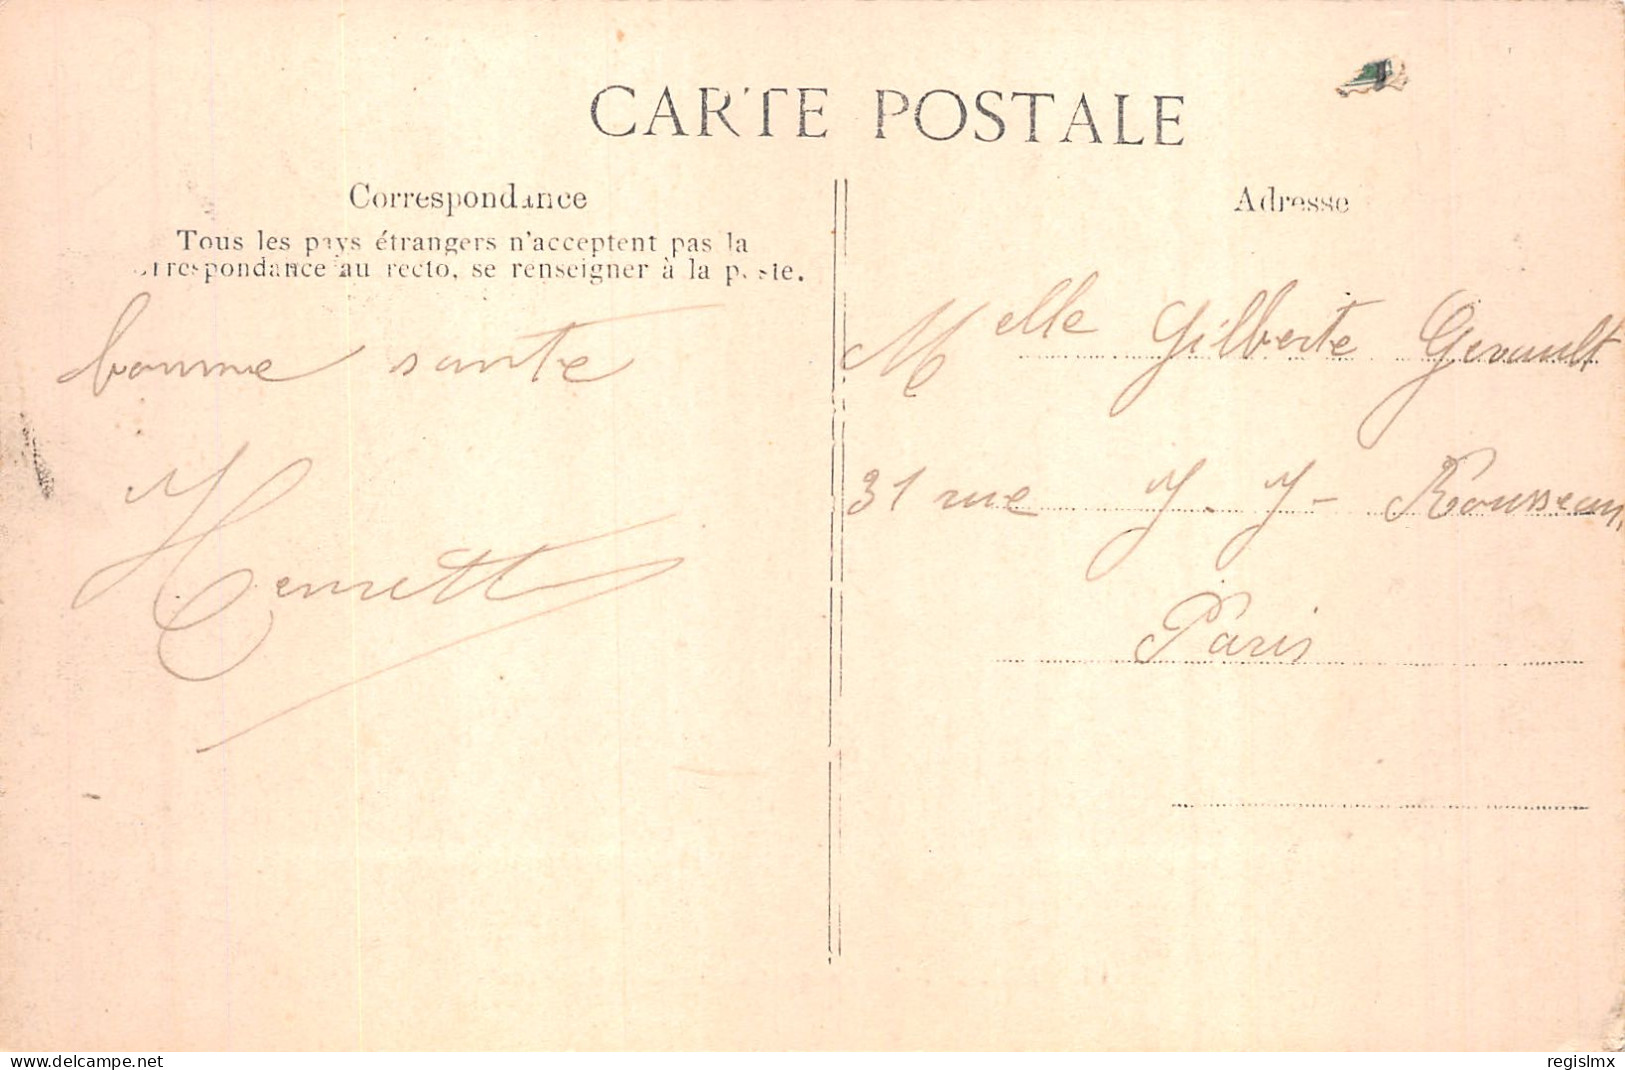 CARTE POSTALE
Correspondance
Tous les pays étrangers n'acceptent pas la
correspondance au recto, se renseigner à la poste.
bonne sante
Henriette
Adresse
Melle Gilberte Gerault
31 rue J. J- Rousseau
Paris
https://www.delcampe.net
regislmx